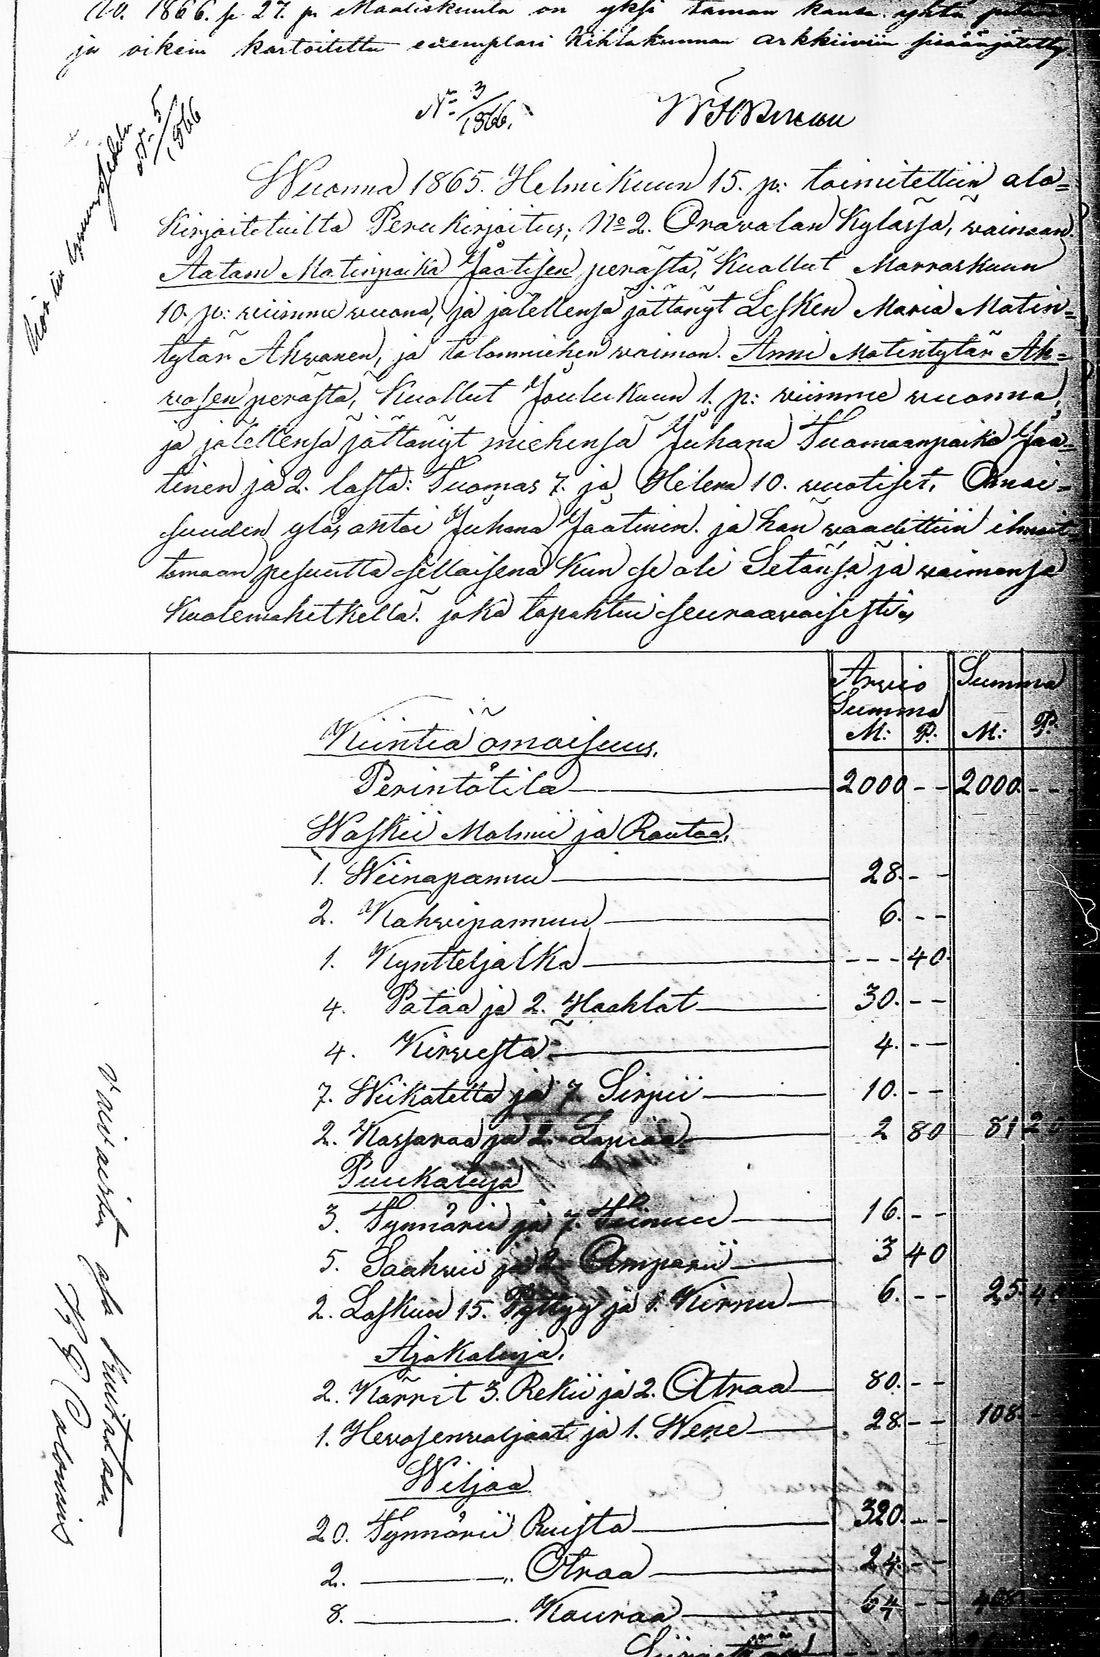 1866. p 27. p. Maaliskuuta on yksi taman kansa yhta
ja oikein kartoitettu exemplari Kihlakunnan arkkiiviin sisäänjätetty
No 3/1866.
No 5/1866
Wuonna 1865. Helmikuun 15. p: toimitettiin ala=
kirjoitetuilta Perukirjoitus, No 2. Oravalan Kylässä, wainaan
Aatam Matinpoika Jäätisen perästä, Kuollut Marraskuun
10. p: wiimme wuona, ja jälellensä jättänyt Lesken Maria Matin=
tytär Ahvonen, ja talonmiehen waimon. Anni Matintytär Ah=
vosen perästä, Kuollut Joulukuun 1. p: wiimme wuonna,
ja jälellensä jättänyt miehensä Juhana Tuomaanpoika Jää=
tinen ja 2. lasta: Tuomas 7. ja Helena 10. wuotiset. Omai=
suuden ylös antoi Juhana Jäätinen. ja hän waadittiin ilmoit=
tamaan pesuutta sellaisena Kun se oli Setänsä ja waimonsa
Kuolemahetkellä. joka tapahtui seuraavaisesti
Arvio Summa
Summa
M: P. M: P.
Kiintiä omaisuus.
Perintötila 2000 -- 2000 --
Waskii Malmii ja Rautaa.
1. Wiinapannu 28. --
2. Kahvipannuu 6. --
1. Kyntteljalka --- 40
4. Pataa ja 2. Haahlat 30. --
4. Kirvestä 4. --
7. Wiikatetta ja 7. Sirpii 10. --
2. Kassaraa ja 2. Lapiaa 2 80 81 20
Puukaluja
3. Tynnörii ja 7. Tiinuu 16. --
5. Saahvii ja 2. Ämpärii 3 40
2. Laskua 15. Pyttyy ja 1. Kirnu 6. -- 25 40
Ajokaluja.
2. Kärrit 3. Rekii ja 2. Atraa 80. --
1. Hevosenvaljaat ja 1. Wene 28 -- 108 --
Wiljaa
20. Tynnörii Ruista 320. --
2. " Otraa 24. --
8. " Kauraa 64 -- 408